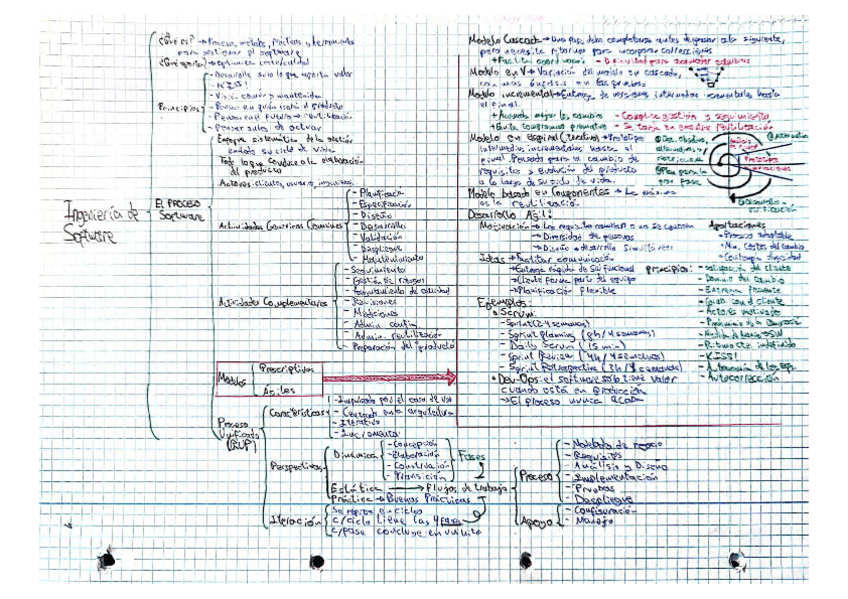 Ingeniería de
Software
El Proceso
Software
¿Qué es? → Proceso, métodos, Prácticas y herramientas
para gestionar el software
→ Optimiza
Principios
- Desarrolla solo lo que aporta valor
- KISS!
- Pensar en quién usará el producto
- Pensar antes de actuar
Enfoque sistemático de la gestión
en todo su ciclo de vida
Todo lo que conduce a la elaboración
del producto
Actores: clientes, usuario,
Actividades Genéricas Comunes
- Planificación
- Especificación
- Diseño
- Desarrollo
- Validación
- Despliegue
- Mantenimiento
Actividades Complementarias
- Seguimiento
- Gestión de riesgos
- Aseguramiento de calidad
- Revisiones
- Mediciones
- Admin. config.
- Admin. reutilización
- Preparación del producto
Modelos
Prescriptivos
Ágiles
Proceso
Unificado
(RUP)
Características
- Impulsado por el caso de uso
- Centrado en la arquitectura
- Iterativo
- Incremental
Perspectivas
Dinámica
- Concepción
- Elaboración
- Construcción
- Transición
Fases
Estática → Flujos de trabajo
Práctica → Buenas Prácticas
Proceso
- Modelado de negocio
- Requisitos
- Análisis y Diseño
- Implementación
- Pruebas
- Despliegue
Apoyo
- Configuración
- Manejo
Iteración
Se repite en ciclos
c/ciclo tiene las 4 fases
c/fase concluye en un hito
Modelo Cascada → Una fase debe completarse antes de pasar a la siguiente,
pero necesita retornar para incorporar correcciones
+ Facilita coordinación - Dificultad para
Modelo en V → Variación del modelo en cascada,
con más énfasis en las pruebas
Modelo incremental → Entrega de versiones intermedias incrementales hasta
el final.
+ Acomoda mejor los cambios - Complica gestión y seguimiento
Modelo en Espiral (Iterativo) → Prototipos
intermedios incrementales hasta el
final. Pensado para el cambio de
requisitos y evolución de producto
a lo largo de su ciclo de vida.
Modelo basado en Componentes → Lo máximo
es la reutilización
Desarrollo Ágil:
Motivación → Los requisitos cambian o no se conocen
→ Diversidad de personas
→ Diseño + desarrollo simultáneos
Aportaciones
- Proceso adaptable
- Min. Costes del cambio
Ideas → Facilitar comunicación
→ Entrega rápida de SW funcional
→ Cliente forma parte del equipo
→ Planificación Flexible
principios:
- satisfacción del cliente
- Dominio del cambio
- Entrega frecuente
- Colab. con el cliente
- Actores motivados
- Ritmo cte. indefinido
- KISS!
- Autocorrección
Ejemplos:
• Scrum:
- Sprint (2-4 semanas)
- Sprint Planning (8h/4 semanas)
- Daily Scrum (15 min)
- Sprint Review (4h/4 semanas)
- Sprint Retrospective (3h/4 semanas)
• Dev-Ops: el software solo tiene valor
cuando está en producción
→ El proceso nunca acaba